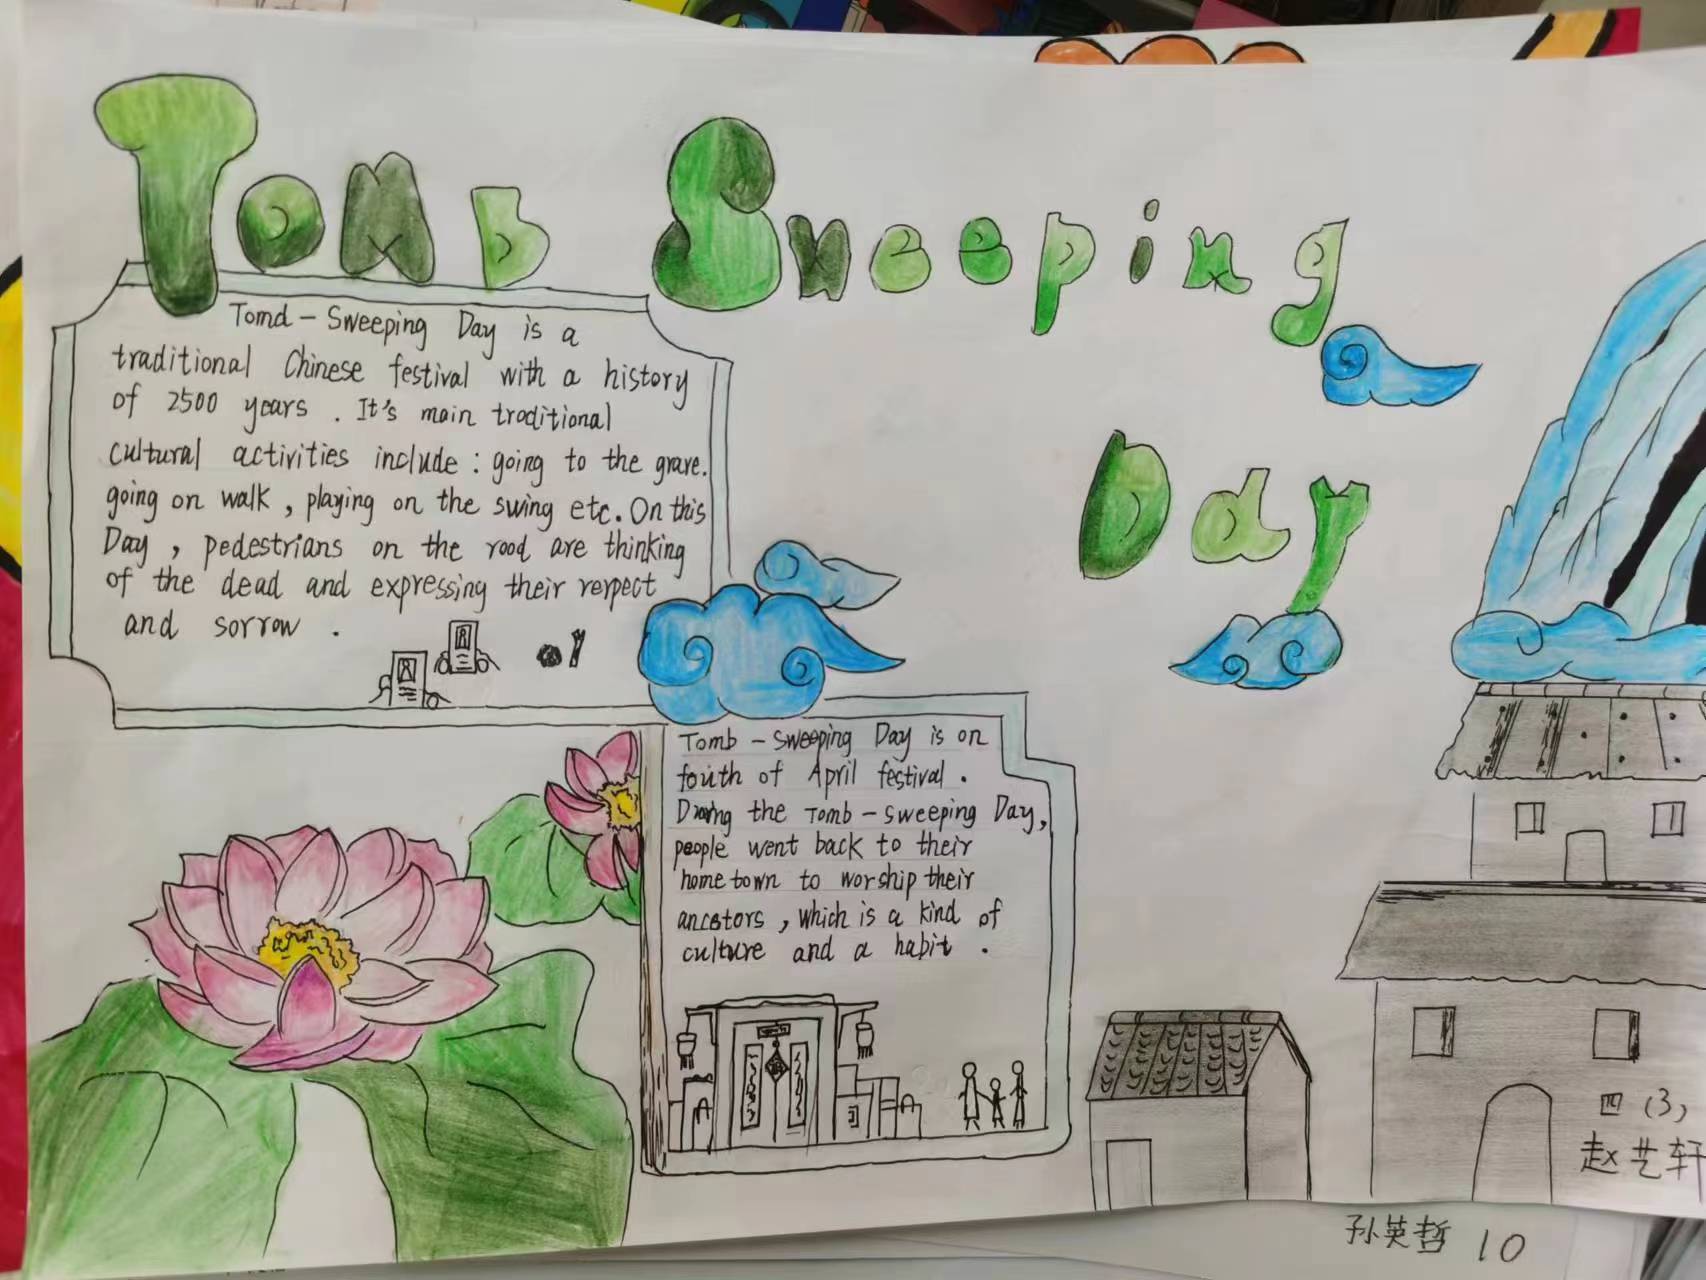 Tomb Sweeping
Day
Tomd - Sweeping Day is a
traditional Chinese festival with a history
of 2500 years . It's main traditional
cultural activities include : going to the grave.
going on walk , playing on the swing etc. On this
Day , pedestrians on the rood are thinking
of the dead and expressing their rerpect
and sorrow .
Tomb - sweeping Day is on
fouth of April festival .
During the Tomb - sweeping Day,
people went back to their
home town to worship their
ancetors , which is a kind of
culture and a habit .
四 (3)
赵艺轩
孙英哲 10